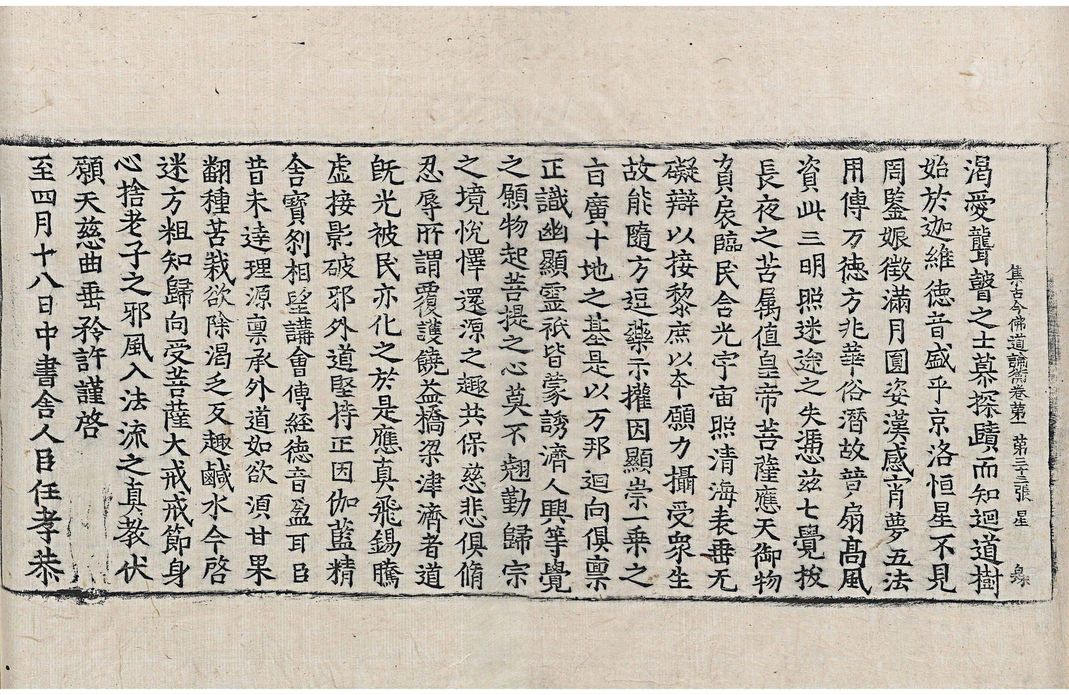 集古今佛道論衡卷第一 第三十三張 星
渴愛聾瞽之士慕探賾而知迴道樹
始於迦維德音盛乎京洛恒星不見
周鑒娠徵滿月圓姿漢感宵夢五法
用傳万德方兆華俗潛故普扇高風
資此三明照迷途之失憑玆七覺拔
長夜之苦属值皇帝菩薩應天御物
負扆臨民含光宇宙照清海表垂无
礙辯以接黎庶以夲願力攝受衆生
故能隨方逗藥示權因顯崇一乘之
旨廣十地之基是以万邦迴向俱禀
正識幽顯靈祇皆蒙誘濟人興等覺
之願物起菩提之心莫不翹勤歸宗
之境悅懌還源之趣共保慈悲俱脩
忍辱所謂覆護饒益橋梁津濟者道
既光被民亦化之於是應真飛錫騰
虛接影破邪外道堅持正因伽藍精
舍寶刹相望講會傳經德音盈耳臣
昔未達理源禀承外道如欲須甘果
翻種苦栽欲除渴乏反趣鹹水今啓
迷方粗知歸向受菩薩大戒戒節身
心捨老子之邪風入法流之真教伏
願天慈曲垂矜許謹啓
至四月十八日中書舍人臣任孝恭